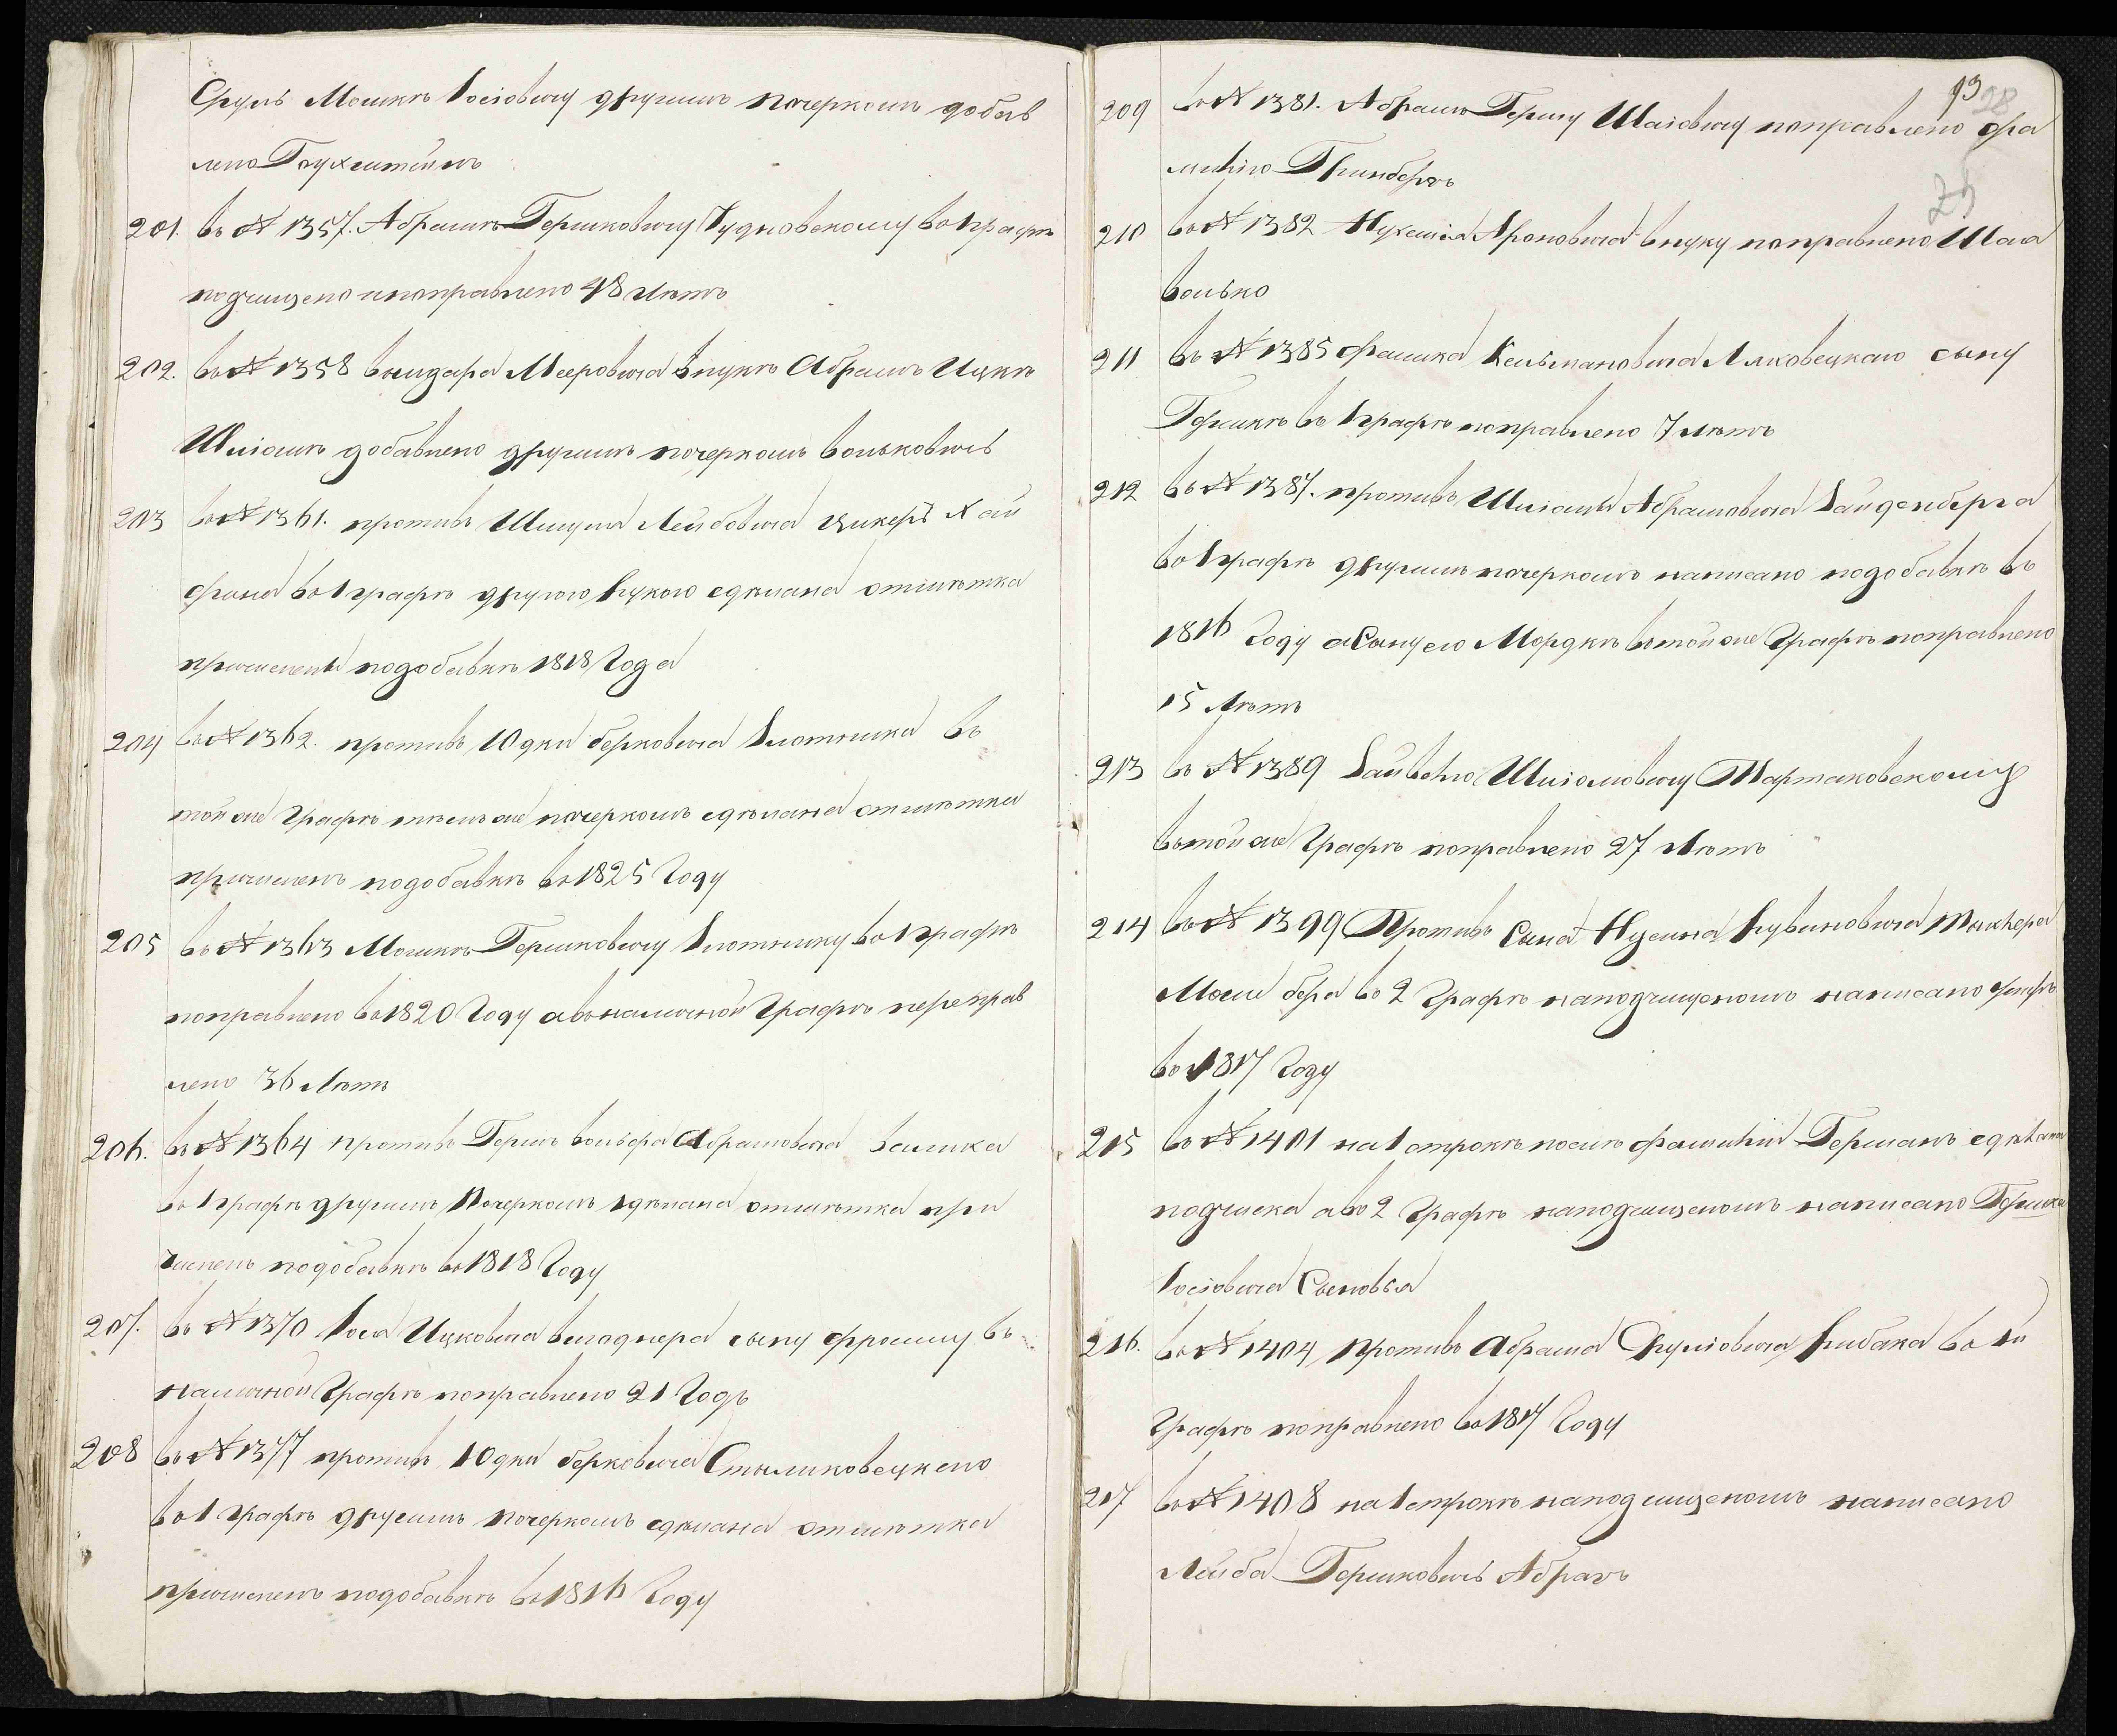 Сруль Мошкѣ Іосіовичу другимъ почеркомъ добав
лено Глухштейнъ
201. въ № 1357. Абрамъ Гершковичу Чудновскому во 1 графѣ
подчищено и поправлено 48 лѣтъ
202. въ № 1358 Вигдора Мееровича Внукъ Абрамъ Ицкѣ
Шліомъ добавлено другимъ почеркомъ Вольковичъ
203 въ № 1361. противъ Шмуля Лейбовича Цикерѣ Хай
фина во 1 графѣ другою рукою сдѣлана отмѣтка
причисленъ подобавкѣ 1818 Года
204 въ № 1362. противъ Юдки Берковича Плотника въ
той же Графѣ тѣмъ же почеркомъ сдѣлана отмѣтка
причисленъ подобавкѣ въ 1825 Году
205 въ № 1363 Мошкѣ Гершковичу Плотнику во 1 графѣ
поправлено въ 1820 Году а въ наличной Графѣ переправ
лено 36 Лѣтъ
206. въ № 1364 противъ Гершъ Вольфа Абрамовича
во 1 графѣ другимъ Почеркомъ сдѣлана отмѣтка при
численъ подобавкѣ въ 1818 Году
207. въ № 1370 Іося Ицковича сыну Фроиму въ
наличной Графѣ поправлено 21 Годъ
208 въ № 1377 противъ Юдки Берковича
во 1 графѣ другимъ Почеркомъ сдѣлана отмѣтка
причисленъ подобавкѣ въ 1816 Году
93
28
25
209 въ № 1381. Абрамъ Гершу Шаіовичу поправлено фа
милію Гринбергъ
210 въ № 1382 Нухима Ароновича внуку поправлено Шая
Волько
211 въ № 1385 Фашка Кельмановича Ляховецкаго сыну
Гершкѣ въ 1 графѣ поправлено 7 лѣтъ
212 въ № 1387. противъ Шліомы Абрамовича Зайденберга
во 1 графѣ другимъ почеркомъ написано подобавкѣ въ
1816 Году а Сыну его Мордкѣ въ той же Графѣ поправлено
15 Лѣтъ
213 въ № 1389 Зайвелю Шліомовичу Тартаковскому
въ той же Графѣ поправлено 27 Лѣтъ
214 въ № 1399 Противъ Сына Нусина Рувиновича
Моше Бера во 2 Графѣ наподчищеномъ написано
въ 1817 Году
215 въ № 1401 на 1 строкѣ послѣ фамиліи Германъ сдѣлана
подчистка а во 2 Графѣ наподчищеномъ написано Гершка
Іосіовича Сыновья
216. въ № 1404 Противъ Абрама Сруліовича Рибака во 1й
Графѣ поправлено въ 1817 Году
217 въ № 1408 на 1 строкѣ наподчищеномъ написано
Лейба Гершковичъ Абрачъ